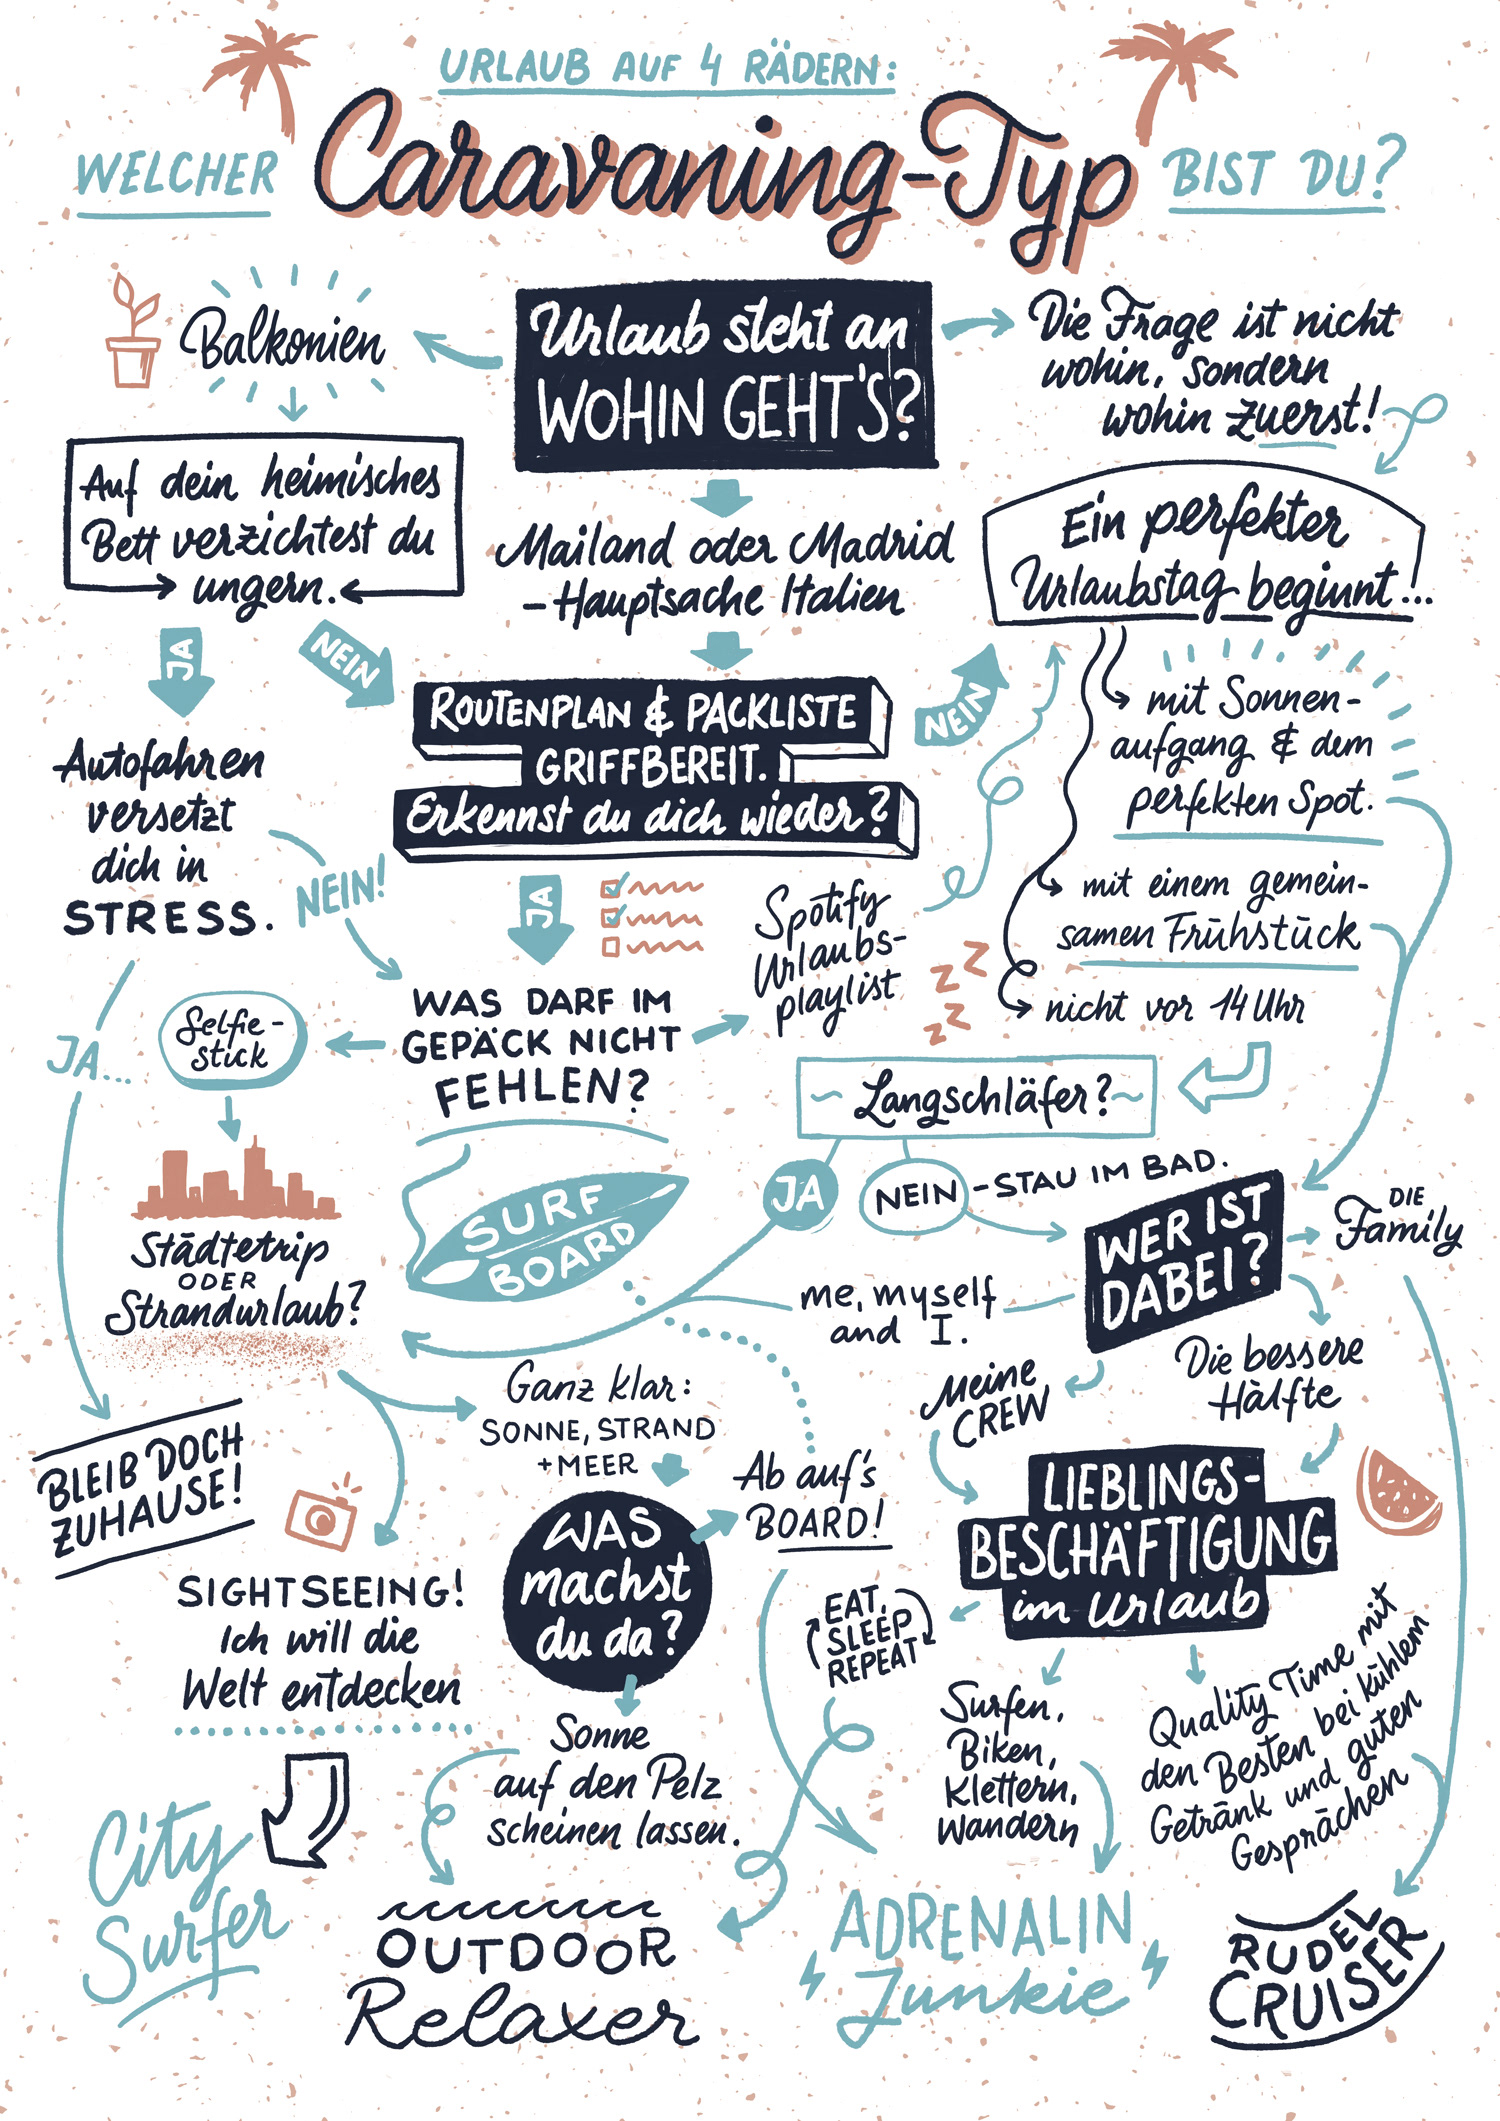 URLAUB AUF 4 RÄDERN:
WELCHER Caravaning-Typ BIST DU?
Balkonien
Urlaub steht an
WOHIN GEHT'S?
Die Frage ist nicht
wohin, sondern
wohin zuerst!
Auf dein heimisches
Bett verzichtest du
ungern.
Mailand oder Madrid
– Hauptsache Italien
Ein perfekter
Urlaubstag beginnt...
JA
NEIN
ROUTENPLAN & PACKLISTE
GRIFFBEREIT.
Erkennst du dich wieder?
NEIN
mit Sonnen-
aufgang & dem
perfekten Spot.
Autofahren
versetzt
dich in
STRESS.
NEIN!
JA
Spotify
Urlaubs-
playlist
mit einem gemein-
samen Frühstück
nicht vor 14 Uhr
Z Z
Z Z
JA...
Selfie-
stick
WAS DARF IM
GEPÄCK NICHT
FEHLEN?
Langschläfer?
JA
NEIN - STAU IM BAD.
SURF
BOARD
WER IST
DABEI?
DIE
Family
Städtetrip
ODER
Strandurlaub?
me, myself
and I.
Meine
CREW
Die bessere
Hälfte
Ganz klar:
SONNE, STRAND
+MEER
BLEIB DOCH
ZUHAUSE!
Ab auf's
BOARD!
WAS
machst
du da?
LIEBLINGS-
BESCHÄFTIGUNG
im Urlaub
SIGHTSEEING!
Ich will die
Welt entdecken
EAT,
SLEEP
REPEAT
Sonne
auf den Pelz
scheinen lassen.
Surfen,
Biken,
Klettern,
Wandern
Quality Time mit
den Besten bei kühlem
Getränk und guten
Gesprächen
City
Surfer
OUTDOOR
Relaxer
ADRENALIN
Junkie
RUDEL
CRUISER